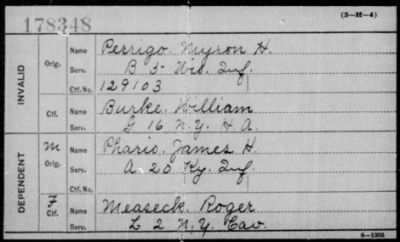 178348
(3—H—4)
INVALID
Orig.
Name Perrigo, Myron H.
Serv. B 5 Wis. Inf.
Ctf. No. 129103
Ctf.
Name Burke, William
Serv. G 16 N.Y. H.A.
DEPENDENT
M
Orig.
Name Phario, James H.
Serv. A 20 Ky. Inf.
Ctf. No.
F
Ctf.
Name Measeck, Roger
Serv. L 2 N.Y. Cav.